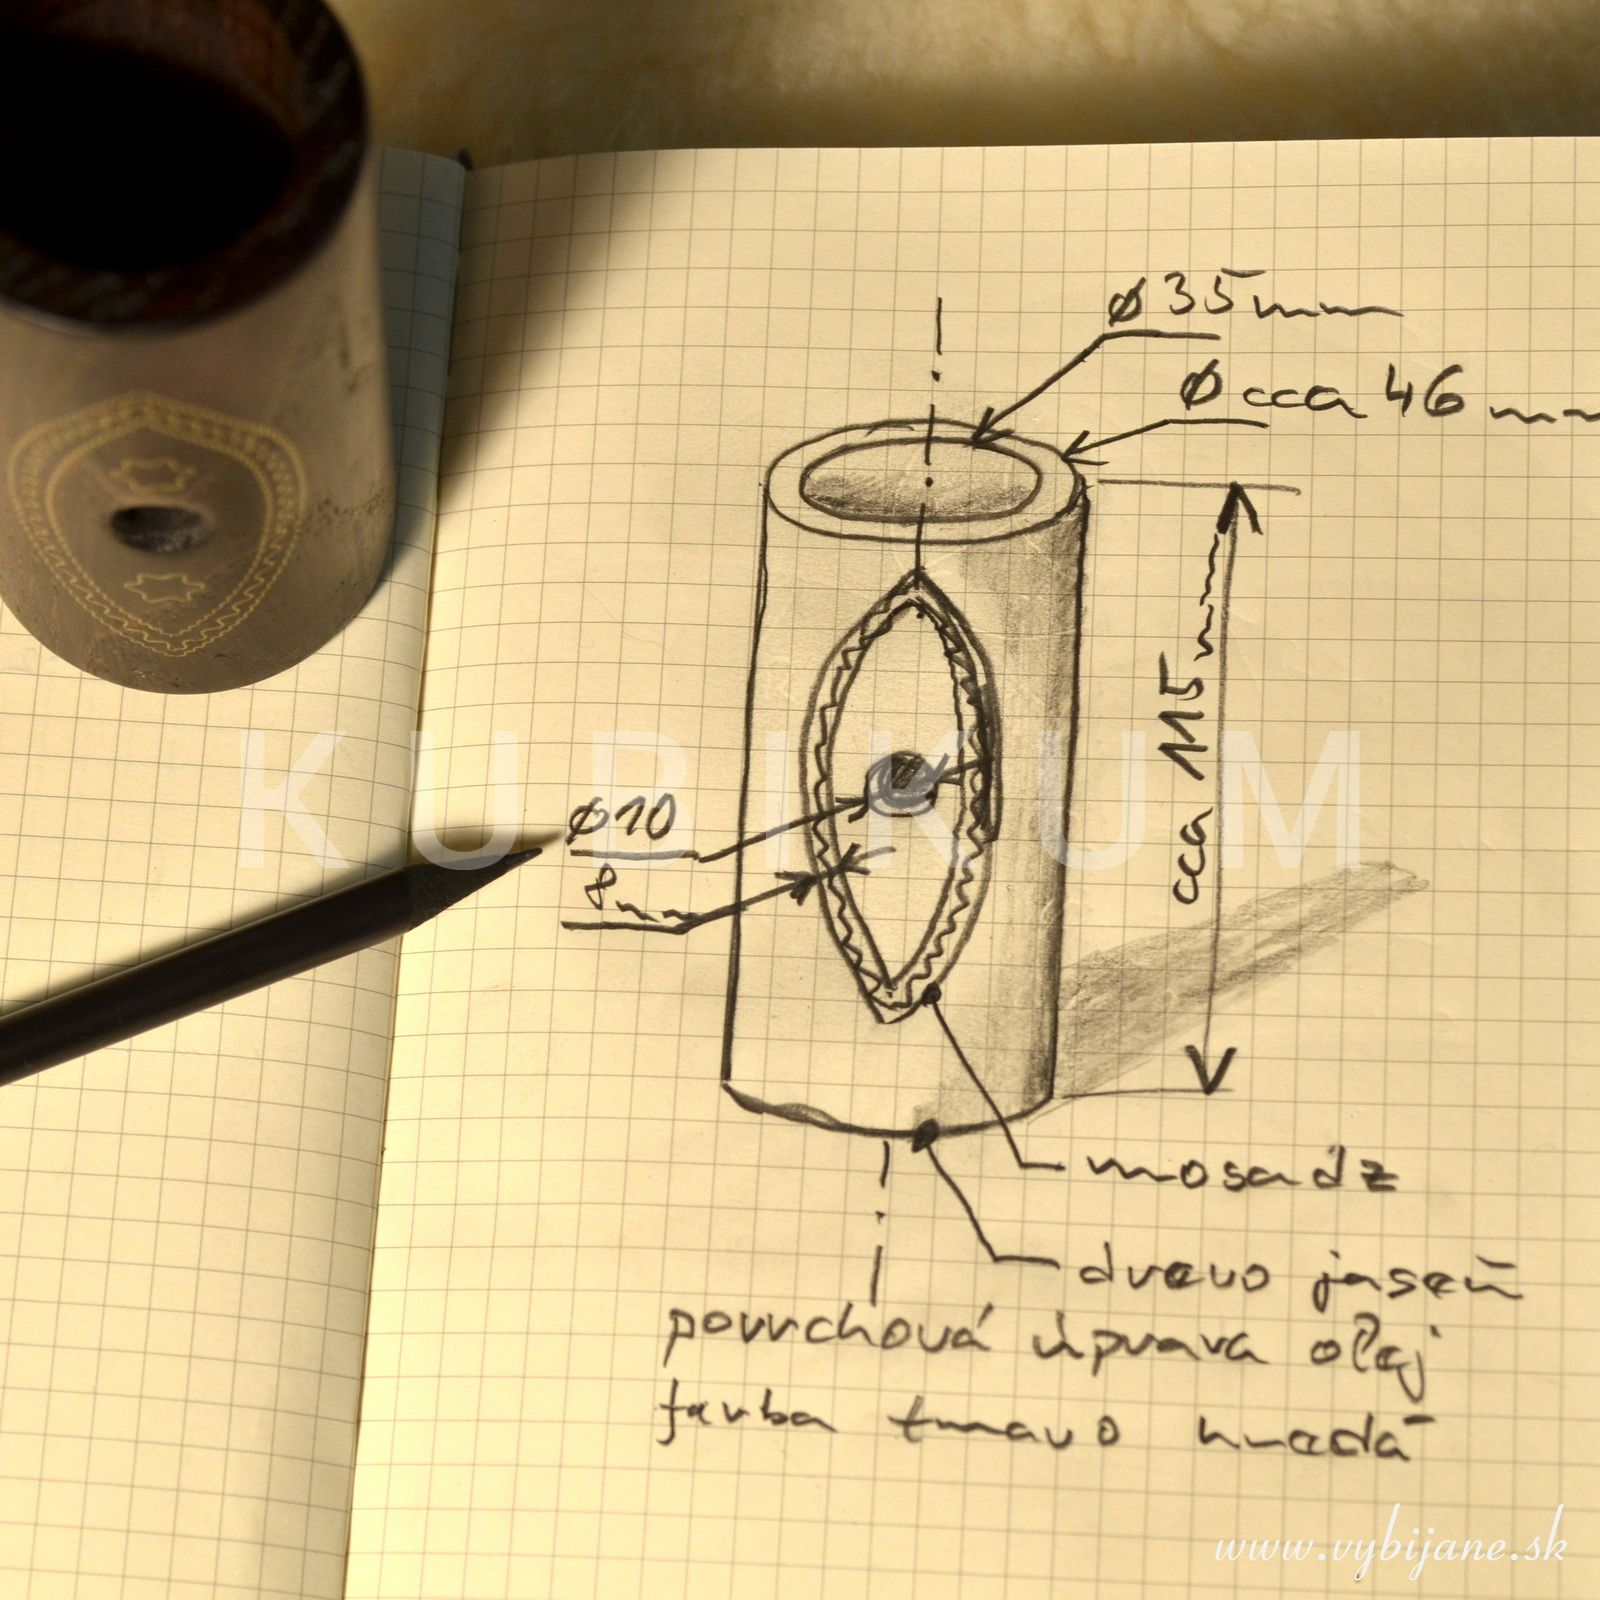 ø 35 mm
ø cca 46 mm
cca 115 mm
KUBIKUM
ø10
8mm
mosadz
drevo jaseň
povrchová úprava olej
farba tmavo hnedá
www.vybijane.sk